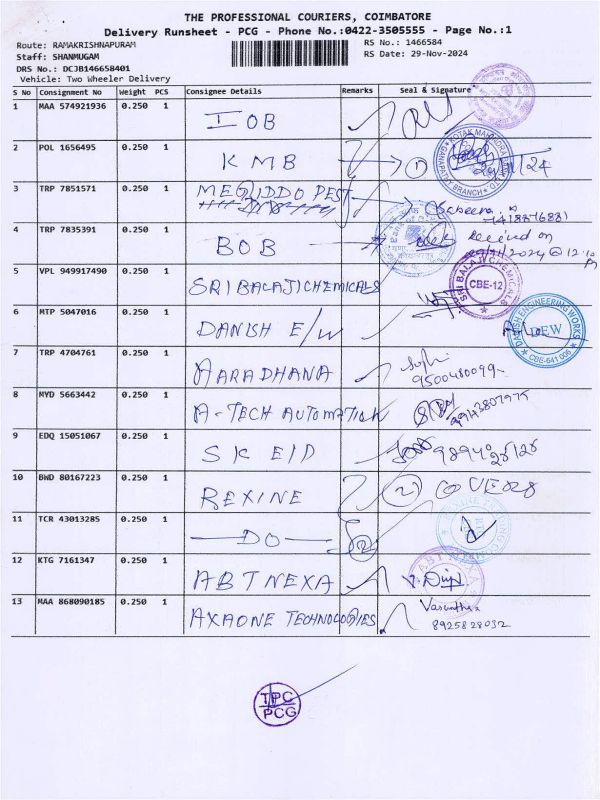 THE PROFESSIONAL COURIERS, COIMBATORE
Delivery Runsheet - PCG - Phone No.:0422-3505555 - Page No.:1
Route: RAMAKRISHNAPURAM
RS No.: 1466584
Staff: SHANMUGAM
RS Date: 29-Nov-2024
DRS No.: DCJB146658401
Vehicle: Two Wheeler Delivery
S No Consignment No Weight PCS Consignee Details Remarks Seal & Signature
1 MAA 574921936 0.250 1 IOB
2 POL 1656495 0.250 1 KMB 1
KOTAK MAHINDRA
GANAPATHY BRANCH
3 TRP 7851571 0.250 1 MEGIDDO PEST
Sabeera
4 TRP 7835391 0.250 1 BOB
Received on
@ 12:10 PM
5 VPL 949917490 0.250 1 SRI BALAJI CHEMICALS
SRI BALAJI CHEMICALS
CBE-12
6 MTP 5047016 0.250 1 DANISH E/W
DANISH ENGINEERING WORKS
DEW
CBE-641 006
7 TRP 4704761 0.250 1 AARADHANA
9500480099
8 MYD 5663442 0.250 1 A-TECH AUTOMATION
9 EDQ 15051067 0.250 1 SK EID
10 BWD 80167223 0.250 1 REXINE 2 COVERS
11 TCR 43013285 0.250 1 DO 2
12 KTG 7161347 0.250 1 ABT NEXA
13 MAA 868090185 0.250 1 AXAONE TECHNOLOGIES
Vasantha
8925828032
TPC
PCG